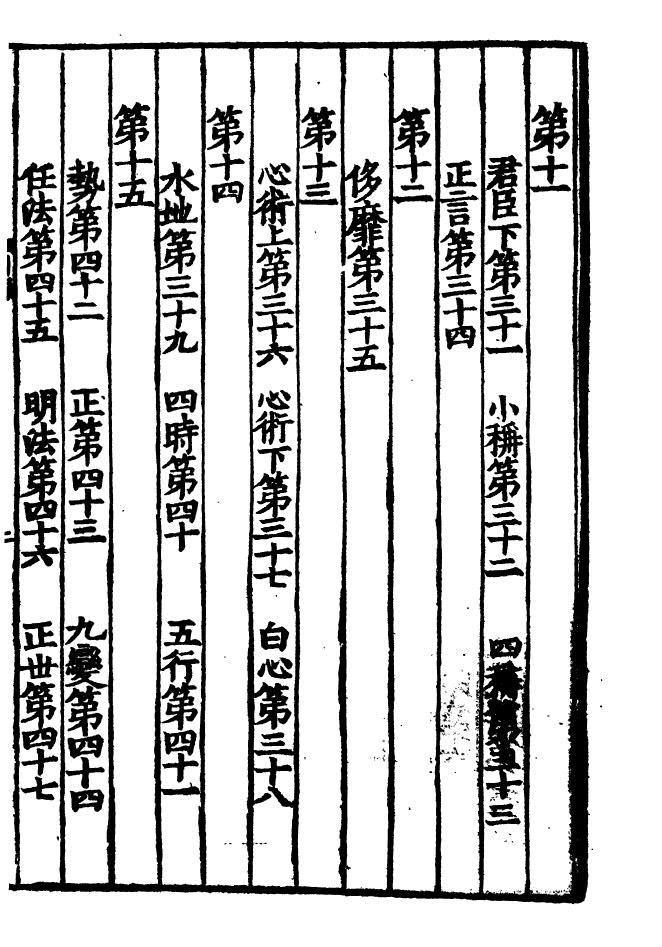 第十一
君臣下第三十一　小稱第三十二　四稱第三十三
正言第三十四
第十二
侈靡第三十五
第十三
心術上第三十六　心術下第三十七　白心第三十八
第十四
水地第三十九　四時第四十　五行第四十一
第十五
勢第四十二　正第四十三　九變第四十四
任法第四十五　明法第四十六　正世第四十七